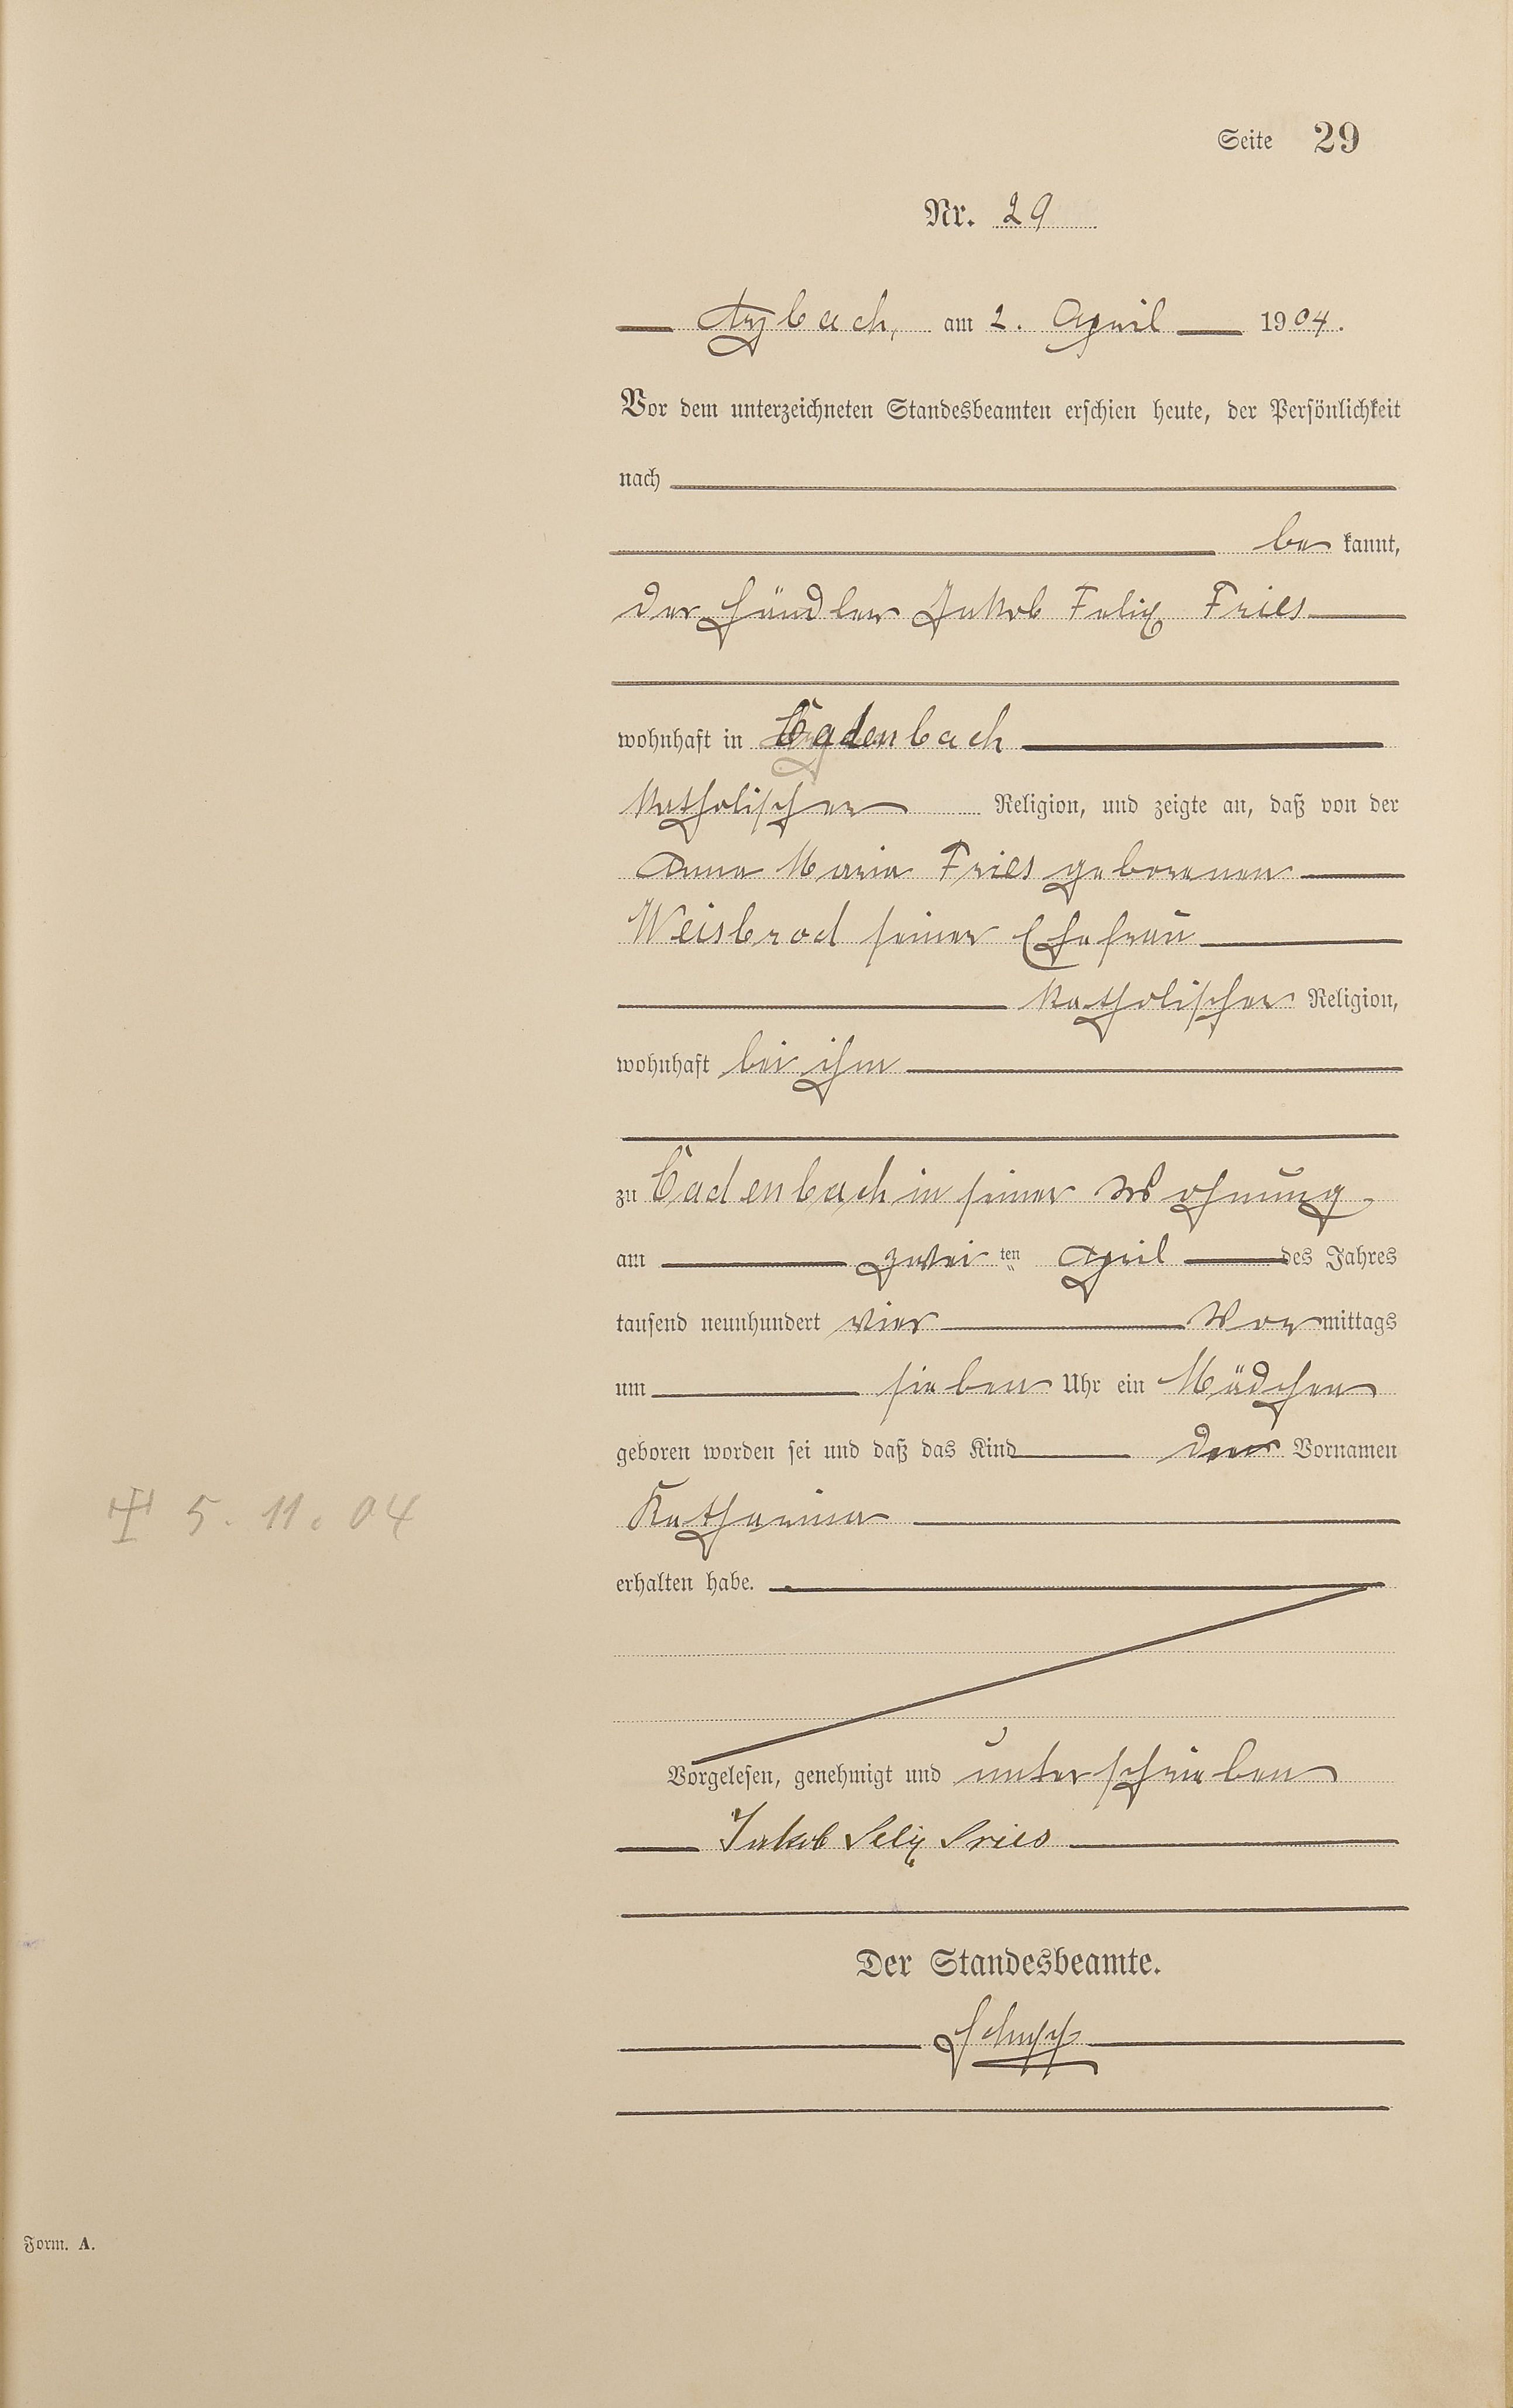 Seite 29
Nr. 29
Arzbach, am 2. April 1904.
Vor dem unterzeichneten Standesbeamten erschien heute, der Persönlichkeit
nach
be kannt,
der Händler Jakob Felix Fries
wohnhaft in Cadenbach
katholischer Religion, und zeigte an, daß von der
Anna Maria Fries geborenen
Weisbrod seiner Ehefrau
katholischer Religion,
wohnhaft bei ihm
zu Cadenbach in seiner Wohnung
am zwei ten April des Jahres
tausend neunhundert vier Vor mittags
um sieben Uhr ein Mädchen
geboren worden sei und daß das Kind den Vornamen
Katharina
† 5. 11. 04
erhalten habe.
Vorgelesen, genehmigt und unterschrieben
Jakob Felix Fries
Der Standesbeamte.
Schupp
Form. A.